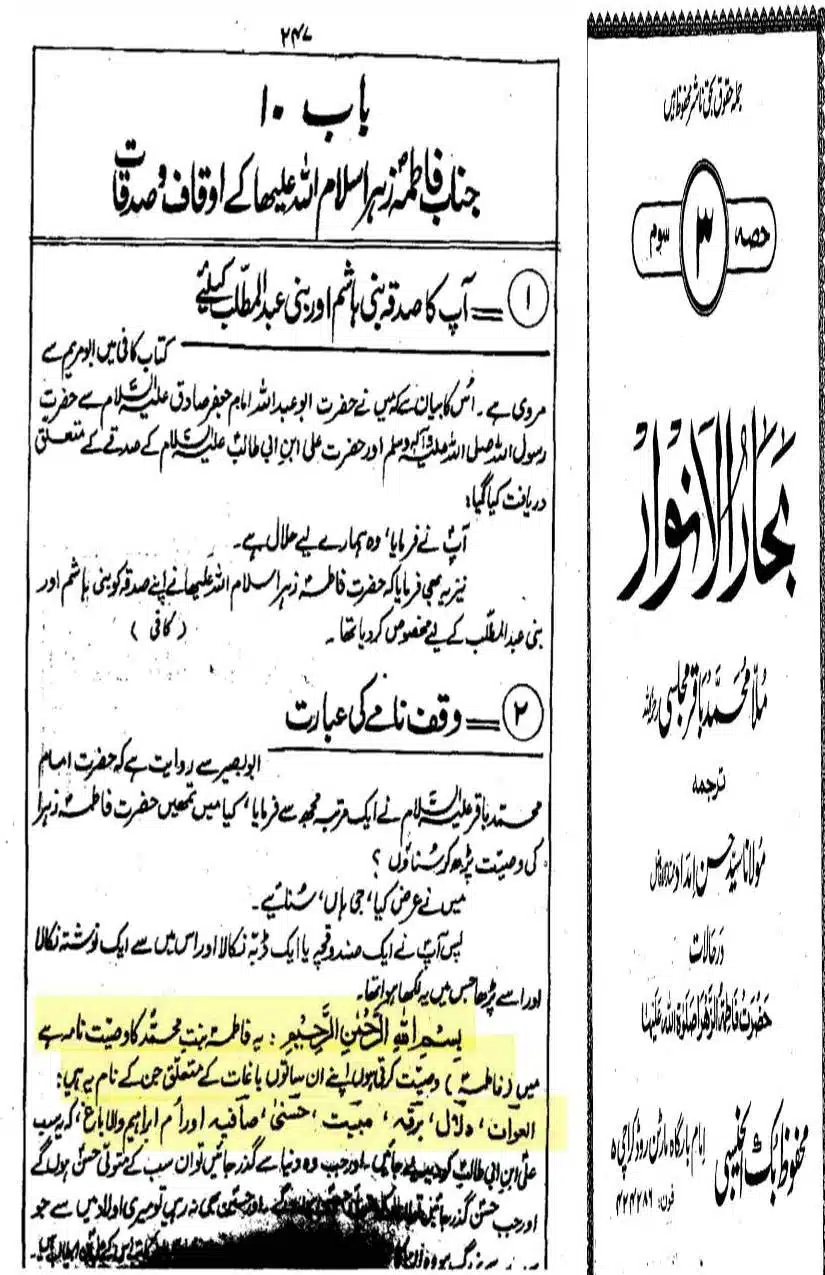 ۲۴۷
باب ۱۰
جناب فاطمہؑ زہرا سلام اللہ علیہا کے اوقاف و صدقات
۱ = آپ کا صدقہ بنی ہاشم اور بنی عبدالمطّلب کیلئے
کتاب کافی میں ابو مریم سے
مروی ہے۔ اُس کا بیان ہے کہ میں نے حضرت ابو عبداللہ امام جعفر صادق علیہ السّلام سے حضرت
رسول اللہ صلی اللہ علیہ وآلہ وسلم اور حضرت علی ابن ابی طالب علیہ السّلام کے صدقے کے متعلق
دریافت کیا گیا:
آپؑ نے فرمایا، وہ ہمارے لیے حلال ہے۔
نیز یہ بھی فرمایا کہ حضرت فاطمہؑ زہرا سلام اللہ علیہا نے اپنے صدقہ کو بنی ہاشم اور
بنی عبدالمطّلب کے لیے مخصوص کر دیا تھا۔ (کافی)
۲ = وقف نامے کی عبارت
ابو بصیر سے روایت ہے کہ حضرت امام
محمد باقر علیہ السّلام نے ایک مرتبہ مجھ سے فرمایا، کیا میں تمھیں حضرت فاطمہؑ زہرا
کی وصیت پڑھ کر سُناؤں ؟
میں نے عرض کیا، جی ہاں، سُنائیے۔
پس آپؑ نے ایک صندوقچہ یا ایک ڈبّہ نکالا اور اس میں سے ایک نوشتہ نکالا
اور اسے پڑھا جس میں یہ لکھا ہوا تھا۔
بِسْمِ اللهِ الرَّحْمٰنِ الرَّحِيْمِ : یہ فاطمہؑ بنتِ محمدؐ کا وصیّت نامہ ہے
میں (فاطمہؑ) وصیّت کرتی ہوں اپنے ان ساتوں باغات کے متعلّق جن کے نام یہ ہیں:
العواف، دلال، برقہ، مبیت، حَسنیٰ، صافیہ اور اُم ابراہیم والا باغ، کہ یہ سب
علی ابن ابی طالبؑ کو دیے جائیں۔ اور جب وہ دنیا سے گذر جائیں تو ان سب کے متولّی حسنؑ ہوں گے
اور جب حسنؑ گذر جائیں اور حسینؑ بھی نہ رہیں تو میری اولاد میں سے جو
جملہ حقوق بحق ناشر محفوظ ہیں
حصہ ۳ سوم
بحارُ الانوار
مُلّا محمّد باقر مجلسی رحمۃ اللہ
ترجمہ
مولانا سیّد حسن امداد
در حالات
حضرت فاطمۃ الزہرا صلوٰۃ اللہ علیہا
محفوظ بک ایجنسی
امام بارگاہ مارٹن روڈ کراچی ۵
فون: ۴۲۴۲۸۶